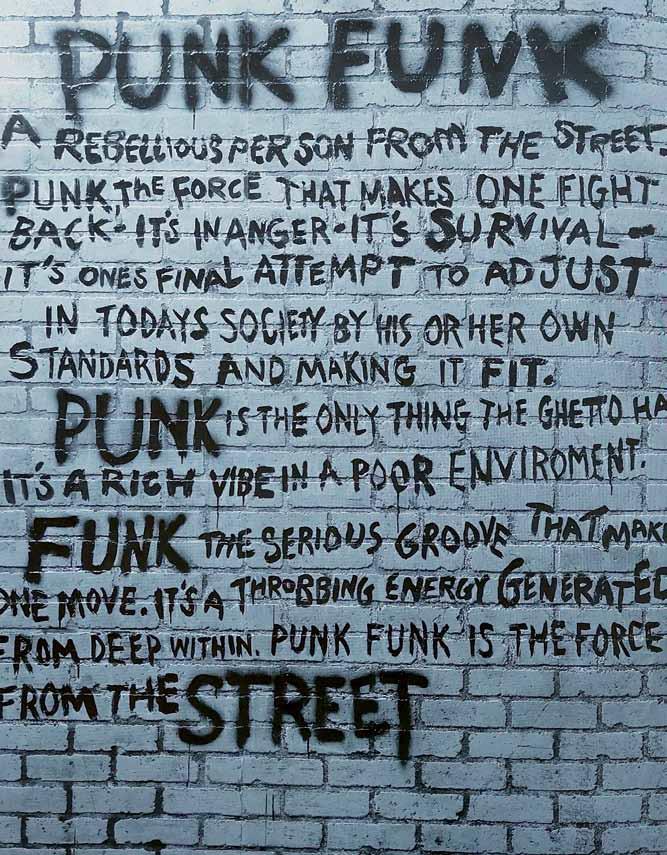 PUNK FUNK
A REBELLIOUS PERSON FROM THE STREET.
PUNK, THE FORCE THAT MAKES ONE FIGHT
BACK! IT'S IN ANGER • IT'S SURVIVAL -
IT'S ONES FINAL ATTEMPT TO ADJUST
IN TODAYS SOCIETY BY HIS OR HER OWN
STANDARDS AND MAKING IT FIT.
PUNK IS THE ONLY THING THE GHETTO HA
IT'S A RICH VIBE IN A POOR ENVIROMENT.
FUNK THE SERIOUS GROOVE THAT MAKE
ONE MOVE. IT'S A THROBBING ENERGY GENERATED
FROM DEEP WITHIN. PUNK FUNK IS THE FORCE
FROM THE STREET